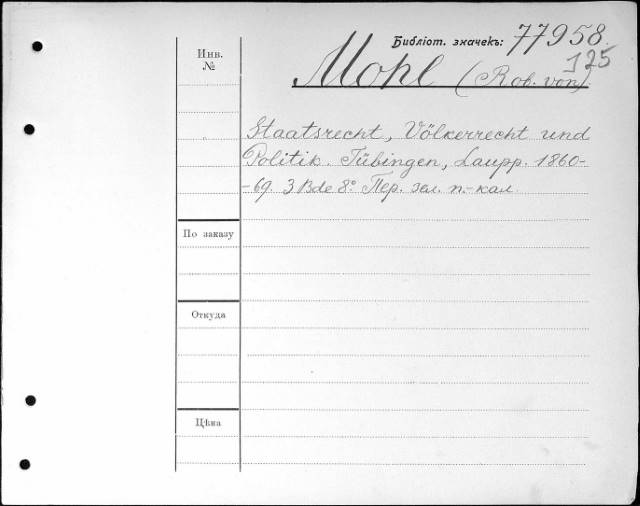 Библіот. значекъ: 77958.
125
Инв.
№
Mohl (Rob. von)
Staatsrecht, Völkerrecht und
Politik. Tübingen, Laupp. 1860-
-69. 3 Bde 8°. Пер. зел. п.-кал.
По заказу
Откуда
Цѣна